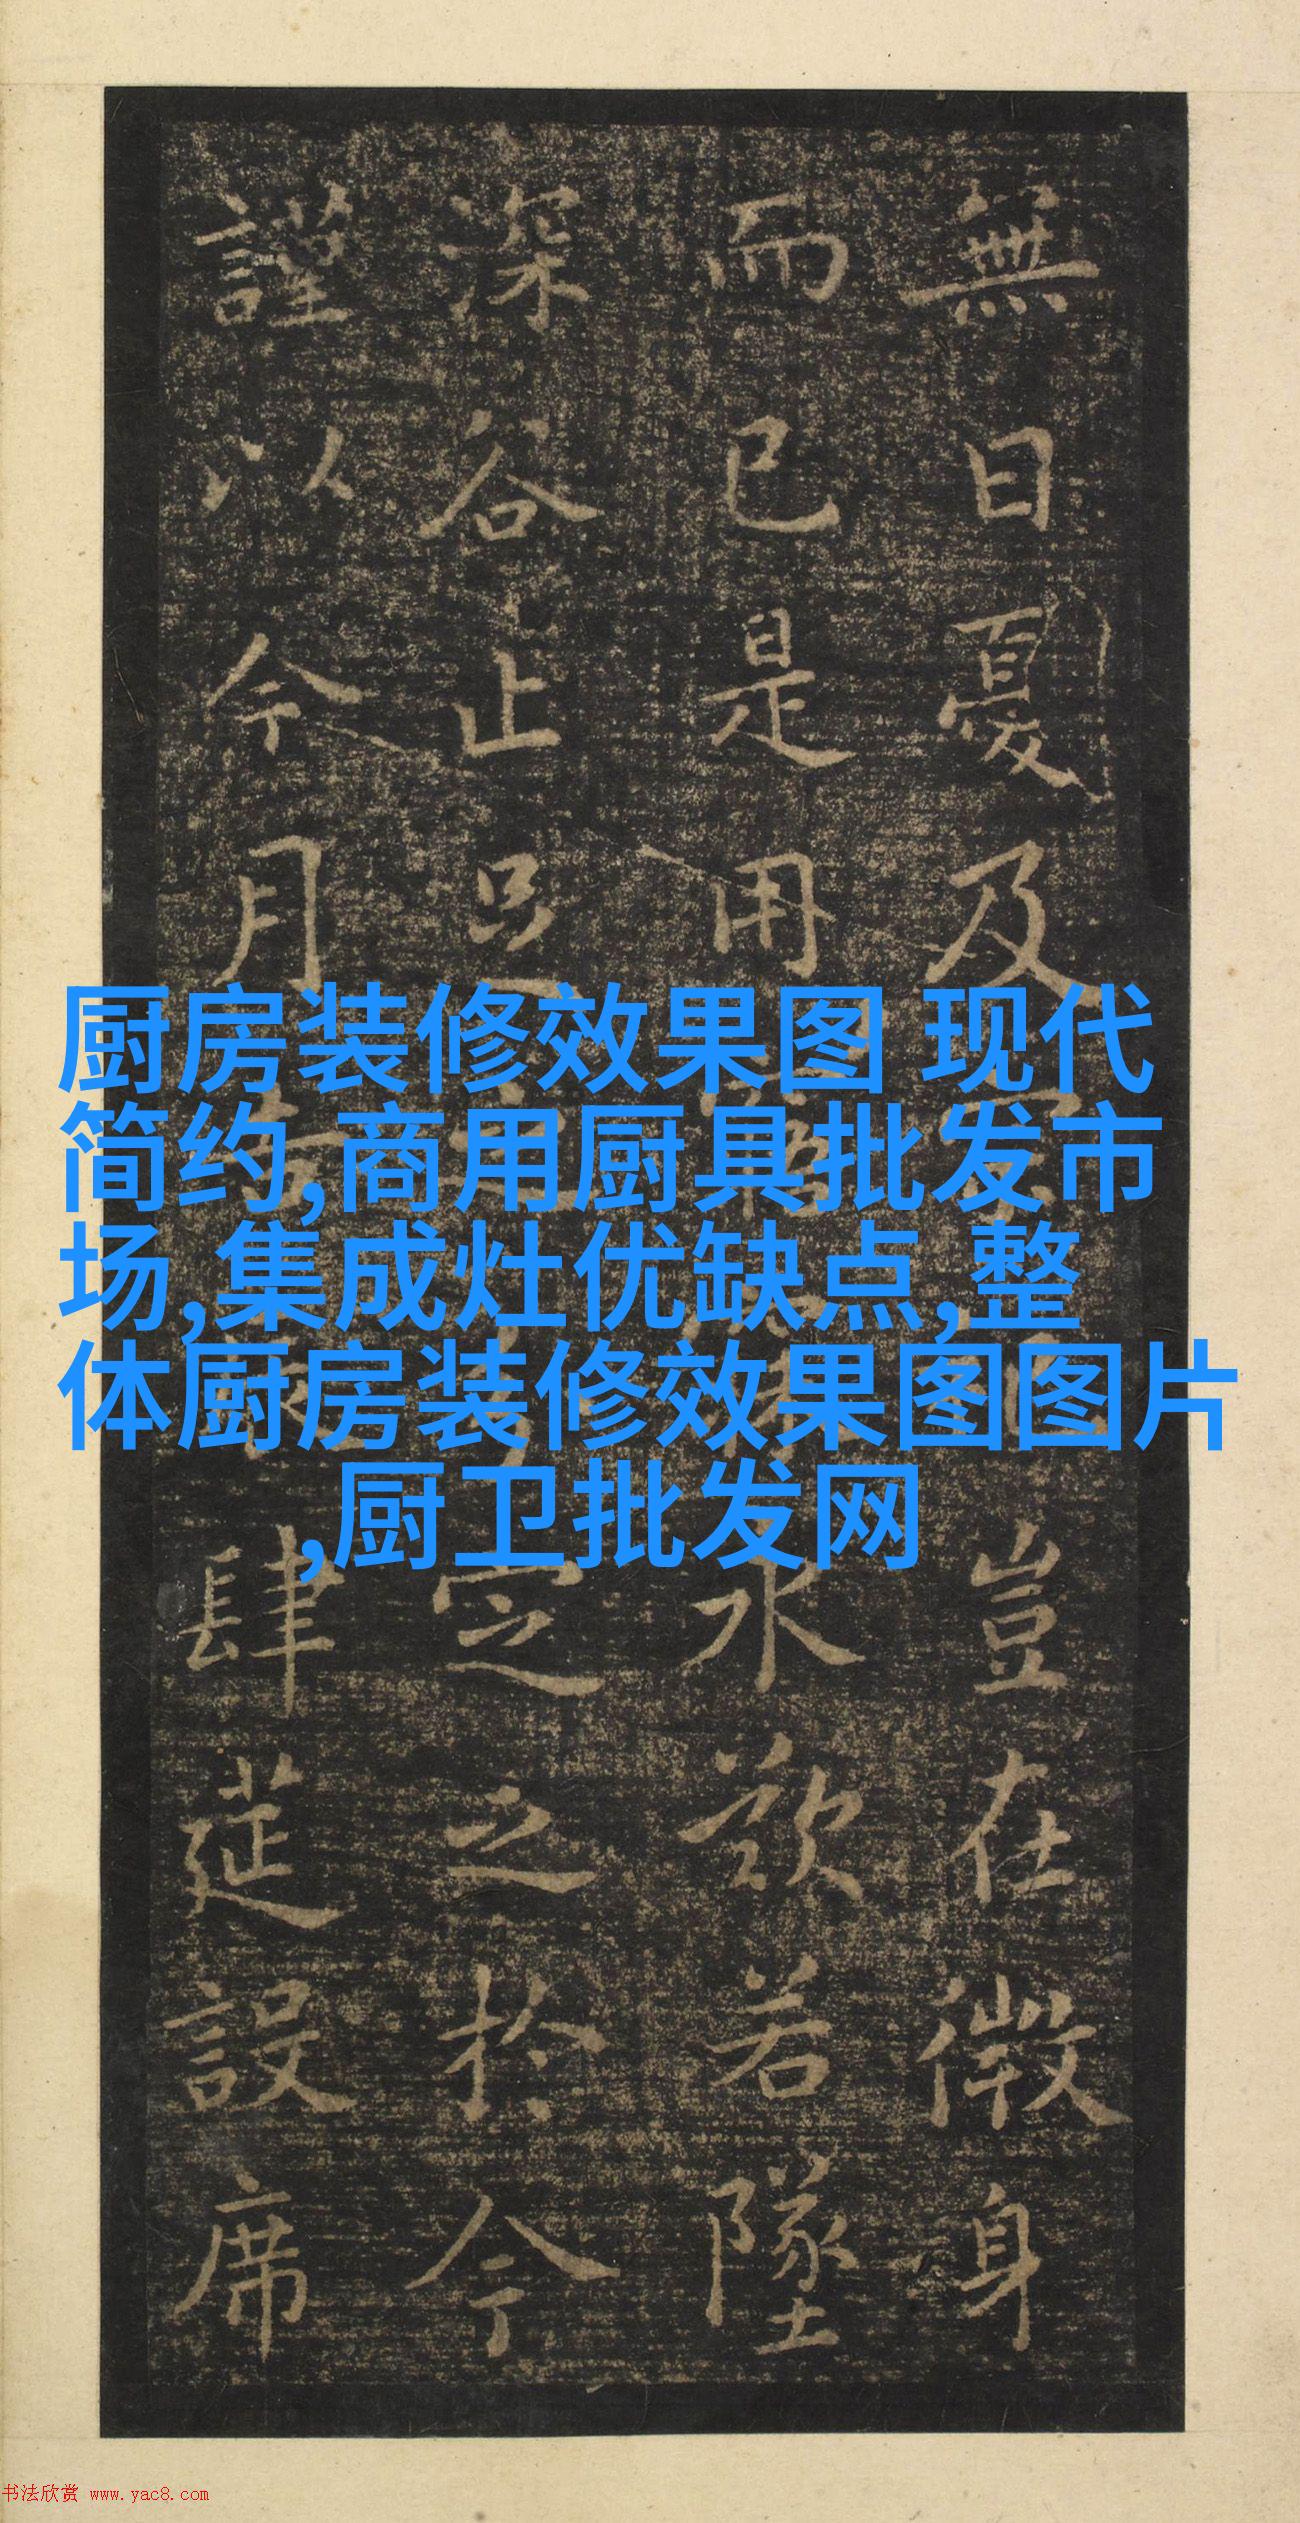 無日憂及豈在微身
而已是用永歎若墜
深谷止足定之於今
謹以今月肆莚設席
厨房装修效果图 现代
简约,商用厨具批发市
场,集成灶优缺点,整
体厨房装修效果图图片
,厨卫批发网
书法欣赏 www.yac8.com